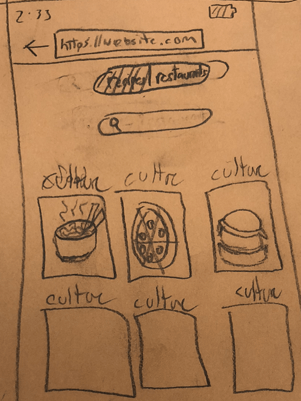 2:33
https://website.com
restaurants
culture culture culture
culture culture culture